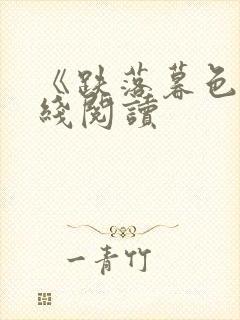 《跌落暮色
綫閱讀
一青竹